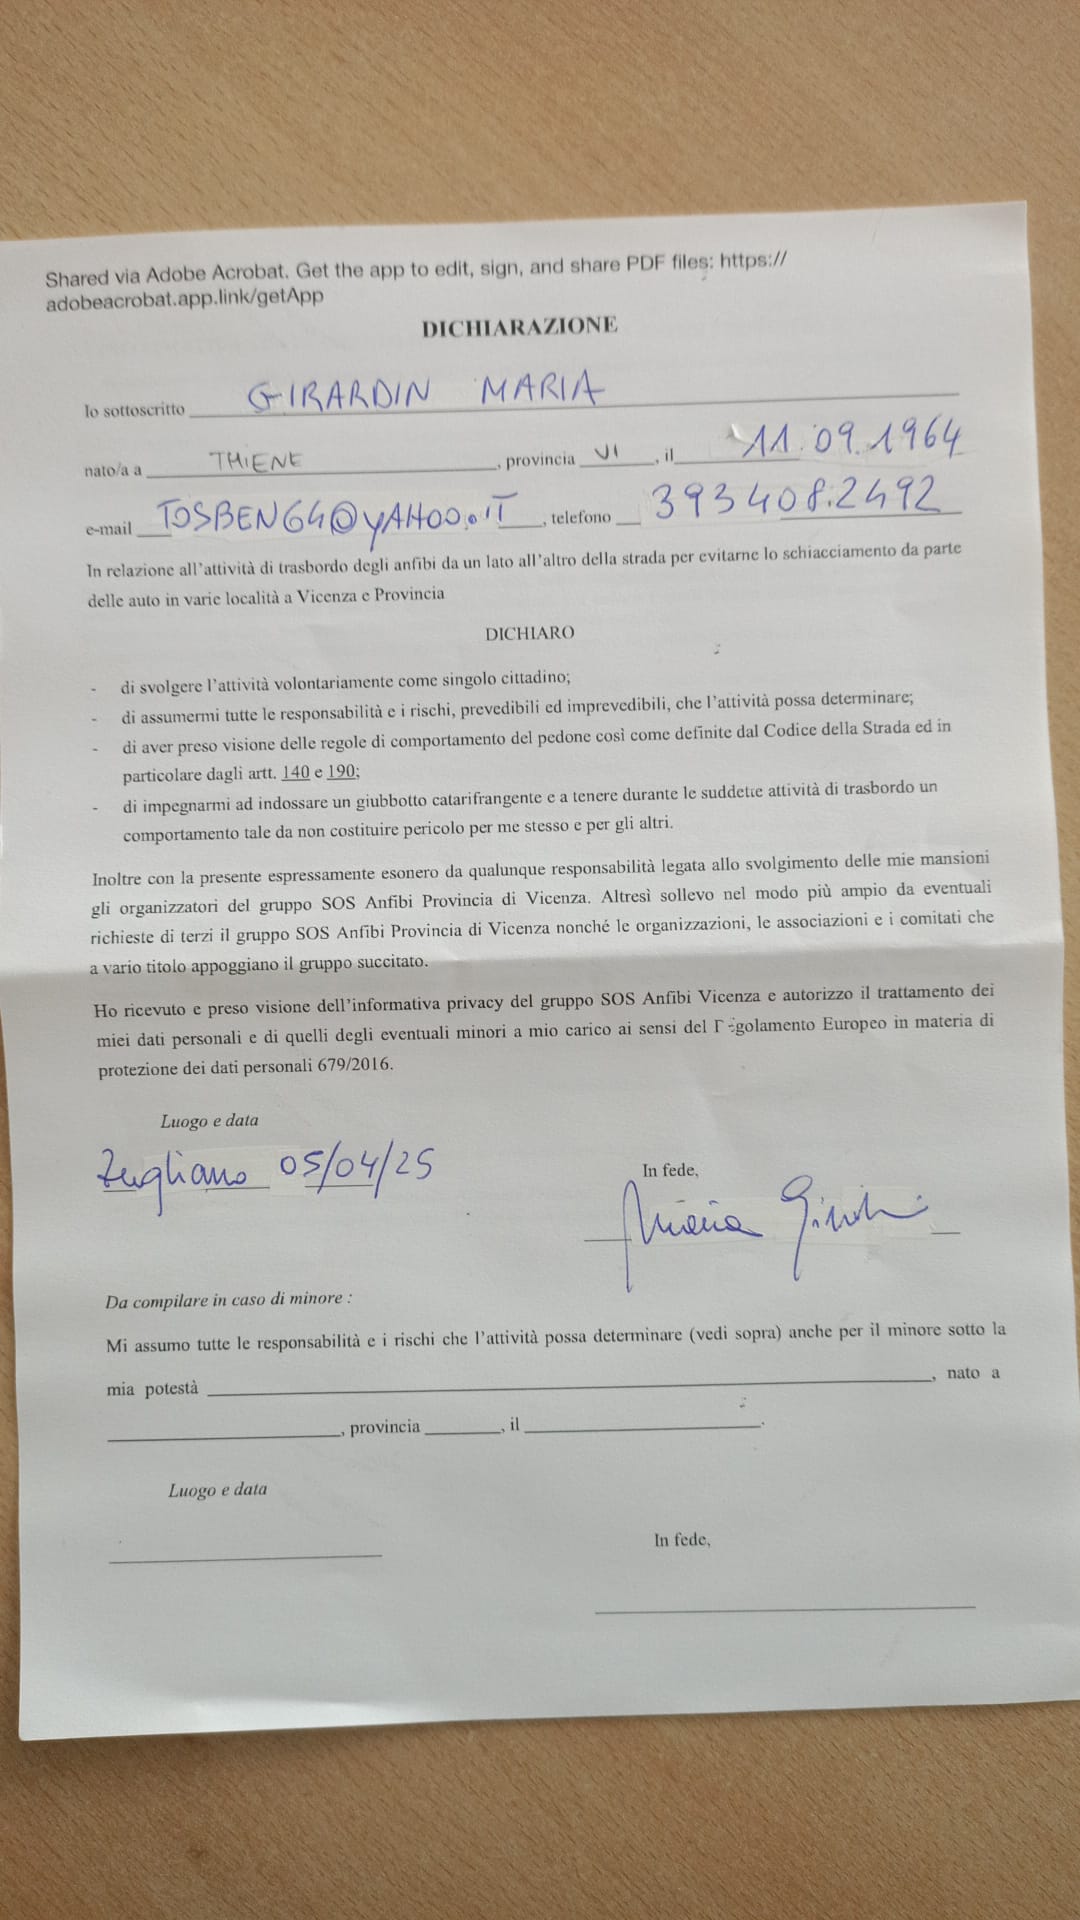 Shared via Adobe Acrobat. Get the app to edit, sign, and share PDF files: https://
adobeacrobat.app.link/getApp
DICHIARAZIONE
Io sottoscritto GIRARDIN MARIA
nato/a a THIENE, provincia VI, il 11.09.1964
e-mail TOSBEN64@YAHOO.IT, telefono 393408.2492
In relazione all'attività di trasbordo degli anfibi da un lato all'altro della strada per evitarne lo schiacciamento da parte
delle auto in varie località a Vicenza e Provincia
DICHIARO
- di svolgere l'attività volontariamente come singolo cittadino;
- di assumermi tutte le responsabilità e i rischi, prevedibili ed imprevedibili, che l'attività possa determinare;
- di aver preso visione delle regole di comportamento del pedone così come definite dal Codice della Strada ed in
particolare dagli artt. 140 e 190;
- di impegnarmi ad indossare un giubbotto catarifrangente e a tenere durante le suddette attività di trasbordo un
comportamento tale da non costituire pericolo per me stesso e per gli altri.
Inoltre con la presente espressamente esonero da qualunque responsabilità legata allo svolgimento delle mie mansioni
gli organizzatori del gruppo SOS Anfibi Provincia di Vicenza. Altresì sollevo nel modo più ampio da eventuali
richieste di terzi il gruppo SOS Anfibi Provincia di Vicenza nonché le organizzazioni, le associazioni e i comitati che
a vario titolo appoggiano il gruppo succitato.
Ho ricevuto e preso visione dell'informativa privacy del gruppo SOS Anfibi Vicenza e autorizzo il trattamento dei
miei dati personali e di quelli degli eventuali minori a mio carico ai sensi del Regolamento Europeo in materia di
protezione dei dati personali 679/2016.
Luogo e data
Zugliano 05/04/25
In fede,
Maria
Da compilare in caso di minore :
Mi assumo tutte le responsabilità e i rischi che l'attività possa determinare (vedi sopra) anche per il minore sotto la
mia potestà , nato a
, provincia , il .
Luogo e data
In fede,